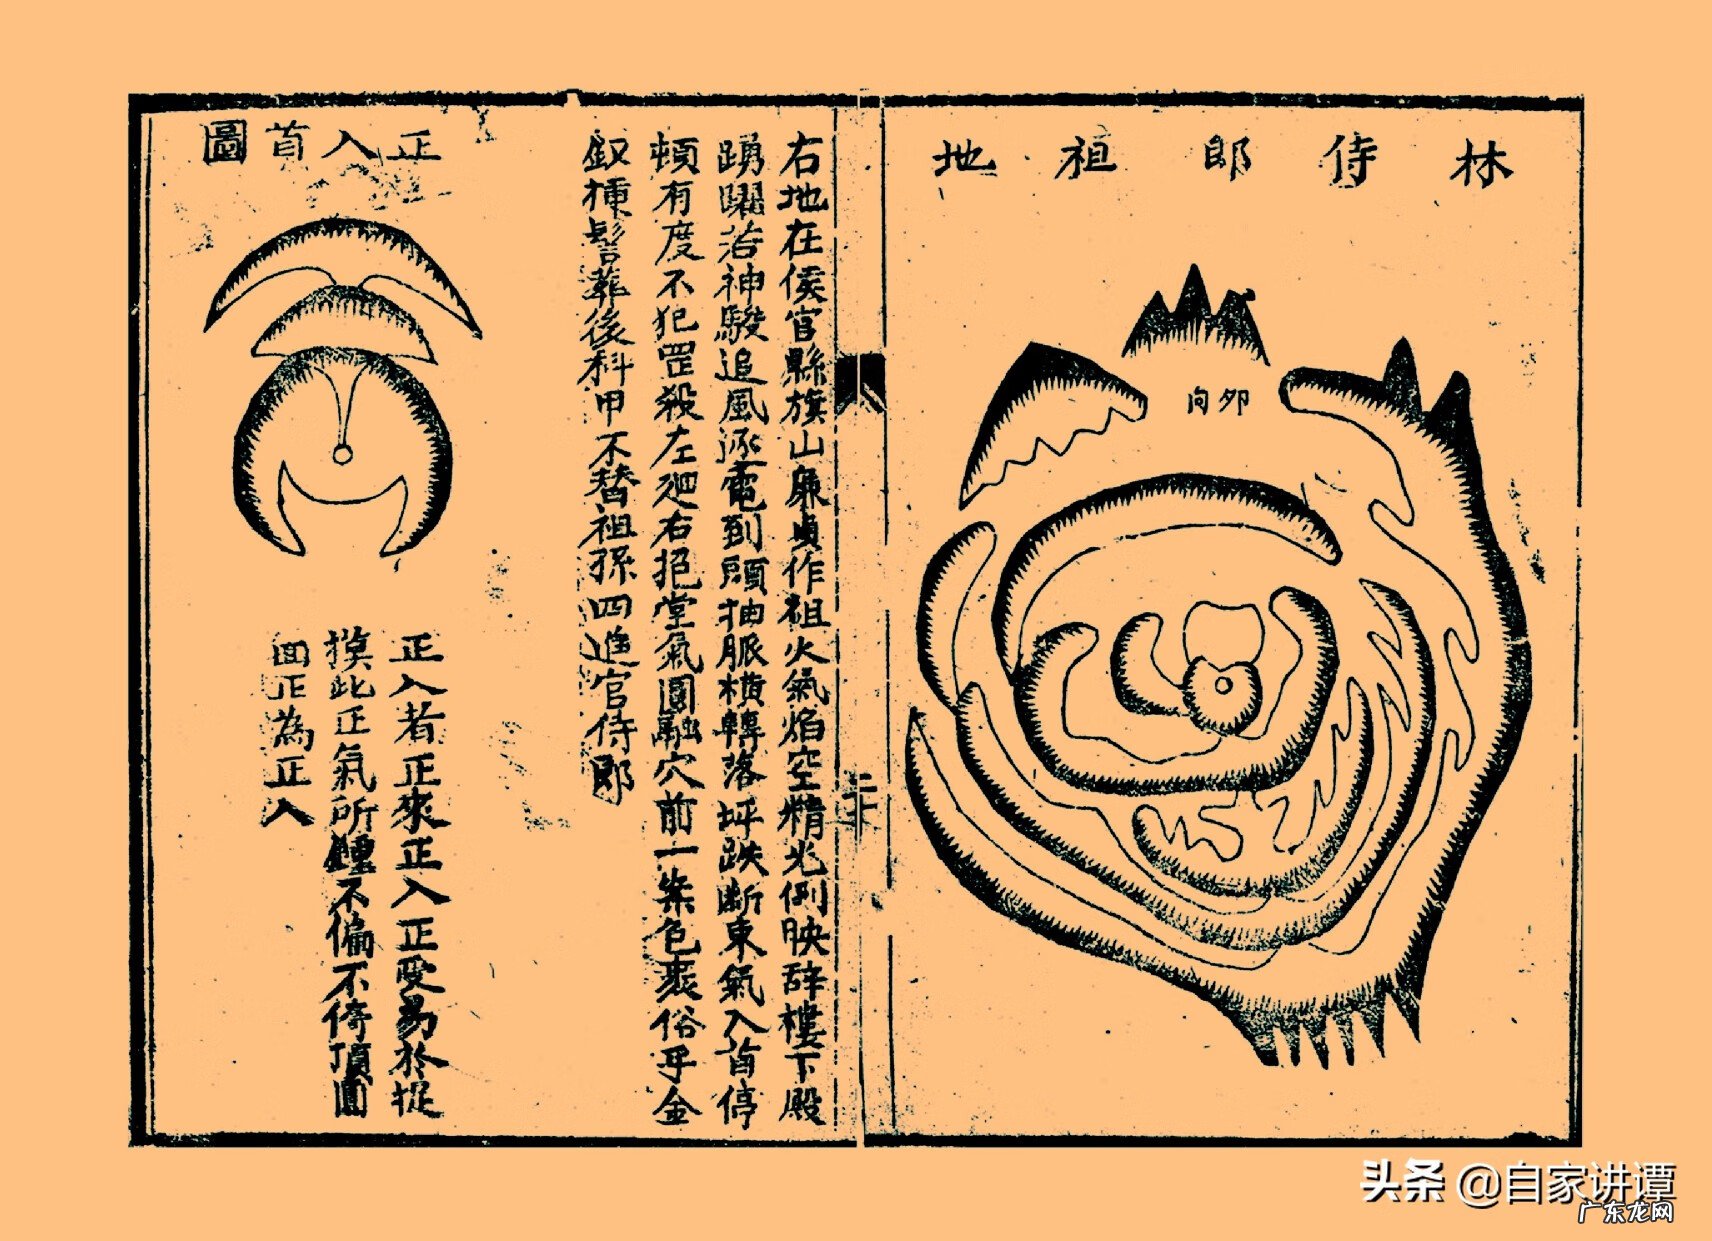 林侍郎祖地
卯向
右地在侯官縣旗山廉貞作祖火氣焰空精光倒映辞樓下殿
踴躍若神駿追風逐電到頭抽脈橫轉落坪跌斷東氣入首停
頓有度不犯罡殺左廻右抱堂氣圓融穴前一案色裹俗乎金
釵插髻葬後科甲不替祖孫四進官侍郎
正入首圖
正入者正來正入正受易於捉
摸此正氣所鍾不偏不倚頂圓
面正為正入
二十
头条 @自家讲谭
广东龙网